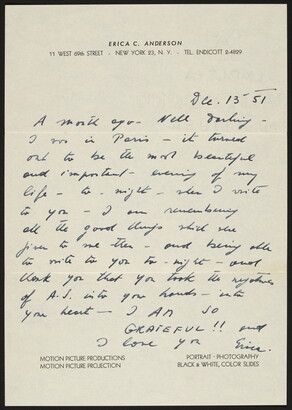 ERICA C. ANDERSON
11 WEST 69th STREET - NEW YORK 23, N. Y. - TEL. ENDICOTT 2-4829
Dec. 13 51
A month ago - Nell Darling -
I was in Paris - it turned
out to be the most beautiful
and important - evening of my
life - to-night - when I write
to you - I am remembering
all the good things which were
given to me then - and being able
to write to you to-night - and
thank you that you took the negatives
of A.S. into your hands - into
your heart - I AM SO
GRATEFUL!! and
I love you Erica.
MOTION PICTURE PRODUCTIONS
MOTION PICTURE PROJECTION
PORTRAIT - PHOTOGRAPHY
BLACK & WHITE, COLOR SLIDES